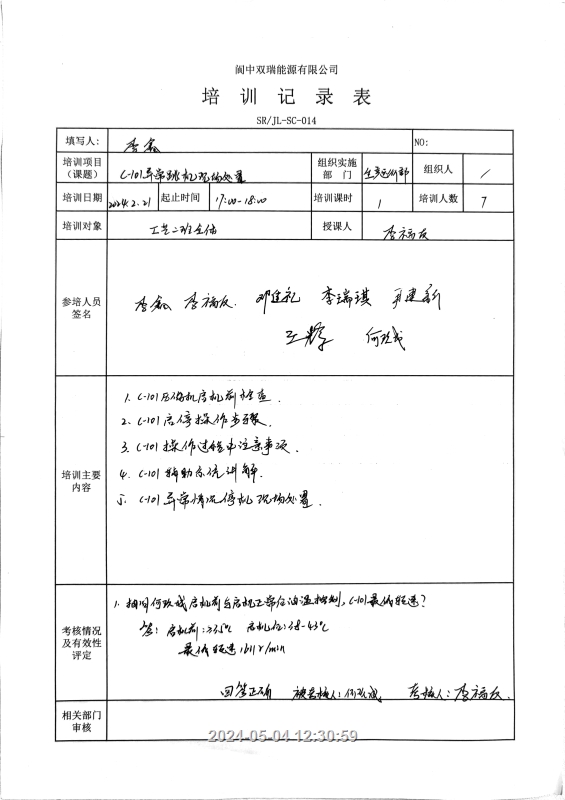 阆中双瑞能源有限公司
培训记录表
SR/JL-SC-014
填写人: 李鑫 NO:
培训项目(课题) C-101异常跳机现场处置 组织实施部门 生产运行部 组织人 /
培训日期 2024.2.21 起止时间 17:00-18:00 培训课时 1 培训人数 7
培训对象 工艺二班全体 授课人 李福友
参培人员签名 李鑫 李福友 邓建礼 李瑞琪
王辉
培训主要内容
1. C-101压缩机启机前检查.
2. C-101启停操作步骤.
3. C-101操作过程中注意事项.
4. C-101辅助系统讲解.
5. C-101异常情况停机现场处置.
考核情况及有效性评定
1. 抽问何 启机前与启机正常后油温控制, C-101最低转速?
答: 启机前:≥35℃ 启机后:38-43℃
最低转速 1611r/min
回答正确 被考核人: 考核人: 李福友.
相关部门审核
2024-05-04 12:30:59